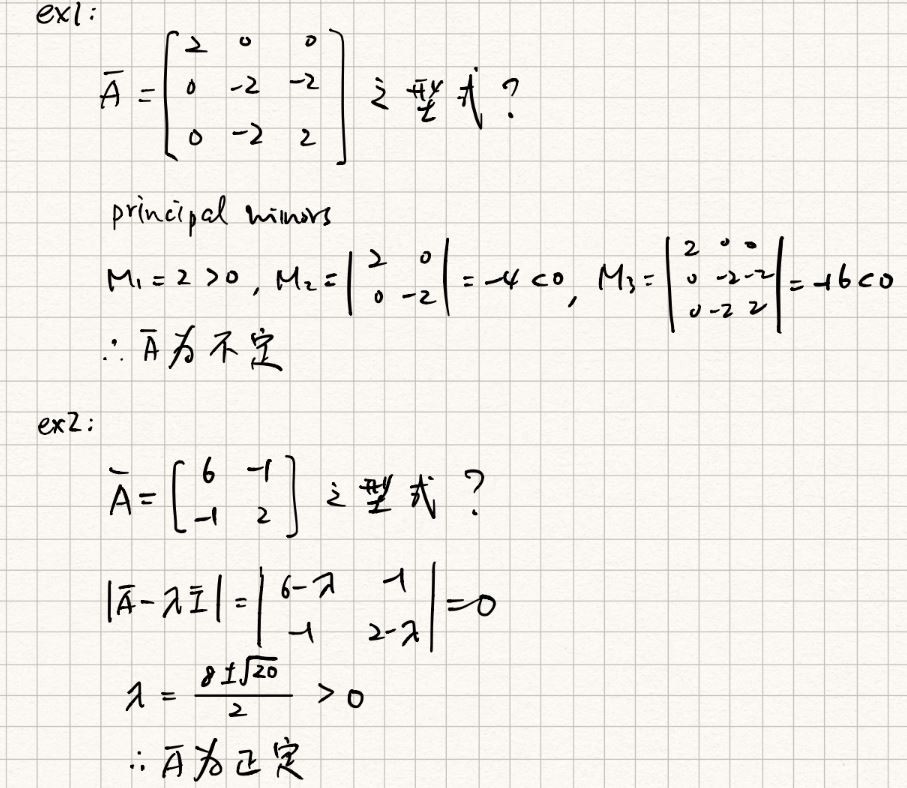 ex1:
Ā = [2 0 0; 0 -2 -2; 0 -2 2] 之型式?
principal minors
M₁ = 2 > 0, M₂ = |2 0; 0 -2| = -4 < 0, M₃ = |2 0 0; 0 -2 -2; 0 -2 2| = -16 < 0
∴ Ā为不定
ex2:
Ā = [6 -1; -1 2] 之型式?
|Ā - λĪ| = |6-λ -1; -1 2-λ| = 0
λ = (8 ± √20) / 2 > 0
∴ Ā为正定